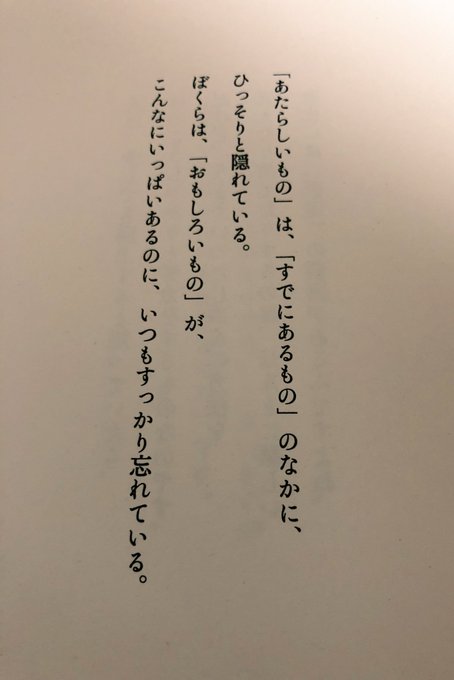 「あたらしいもの」は、「すでにあるもの」のなかに、
ひっそりと隠れている。
ぼくらは、「おもしろいもの」が、
こんなにいっぱいあるのに、いつもすっかり忘れている。